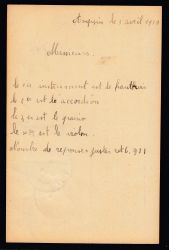 le 1 avril 1919
Messieurs.
le 1er instrument est le hautbois
le 2e est le accordéon
le 3e est le piano
le 4e est le violon.
Nombre de reponses justes